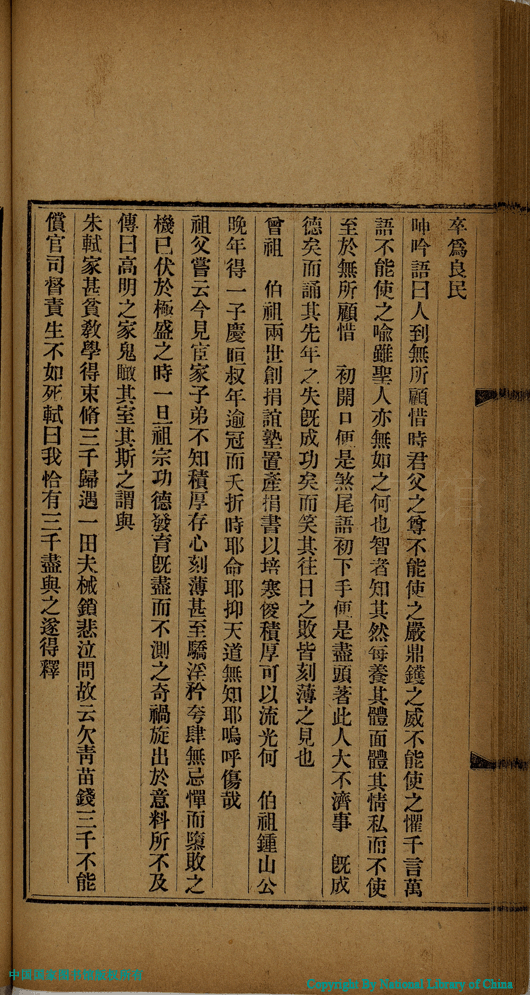 卒爲良民
呻吟語曰人到無所顧惜時君父之尊不能使之嚴鼎鑊之威不能使之懼千言萬
語不能使之喻雖聖人亦無如之何也智者知其然每養其體面體其情私而不使
至於無所顧惜　初開口便是煞尾語初下手便是盡頭著此人大不濟事　旣成
德矣而誦其先年之失旣成功矣而笑其往日之敗皆刻薄之見也
曾祖　伯祖兩世創捐誼塾置產捐書以培寒俊積厚可以流光何　伯祖鍾山公
晚年得一子慶晅叔年逾冠而夭折時耶命耶抑天道無知耶嗚呼傷哉
祖父嘗云今見宦家子弟不知積厚存心刻薄甚至驕淫矜夸肆無忌憚而隳敗之
機已伏於極盛之時一旦祖宗功德發育旣盡而不測之奇禍旋出於意料所不及
傳曰高明之家鬼瞰其室其斯之謂與
朱軾家甚貧敎學得束脩三千歸遇一田夫械鎖悲泣問故云欠靑苗錢三千不能
償官司督責生不如死軾曰我恰有三千盡與之遂得釋
中国国家图书馆版权所有
Copyright By National Library of China